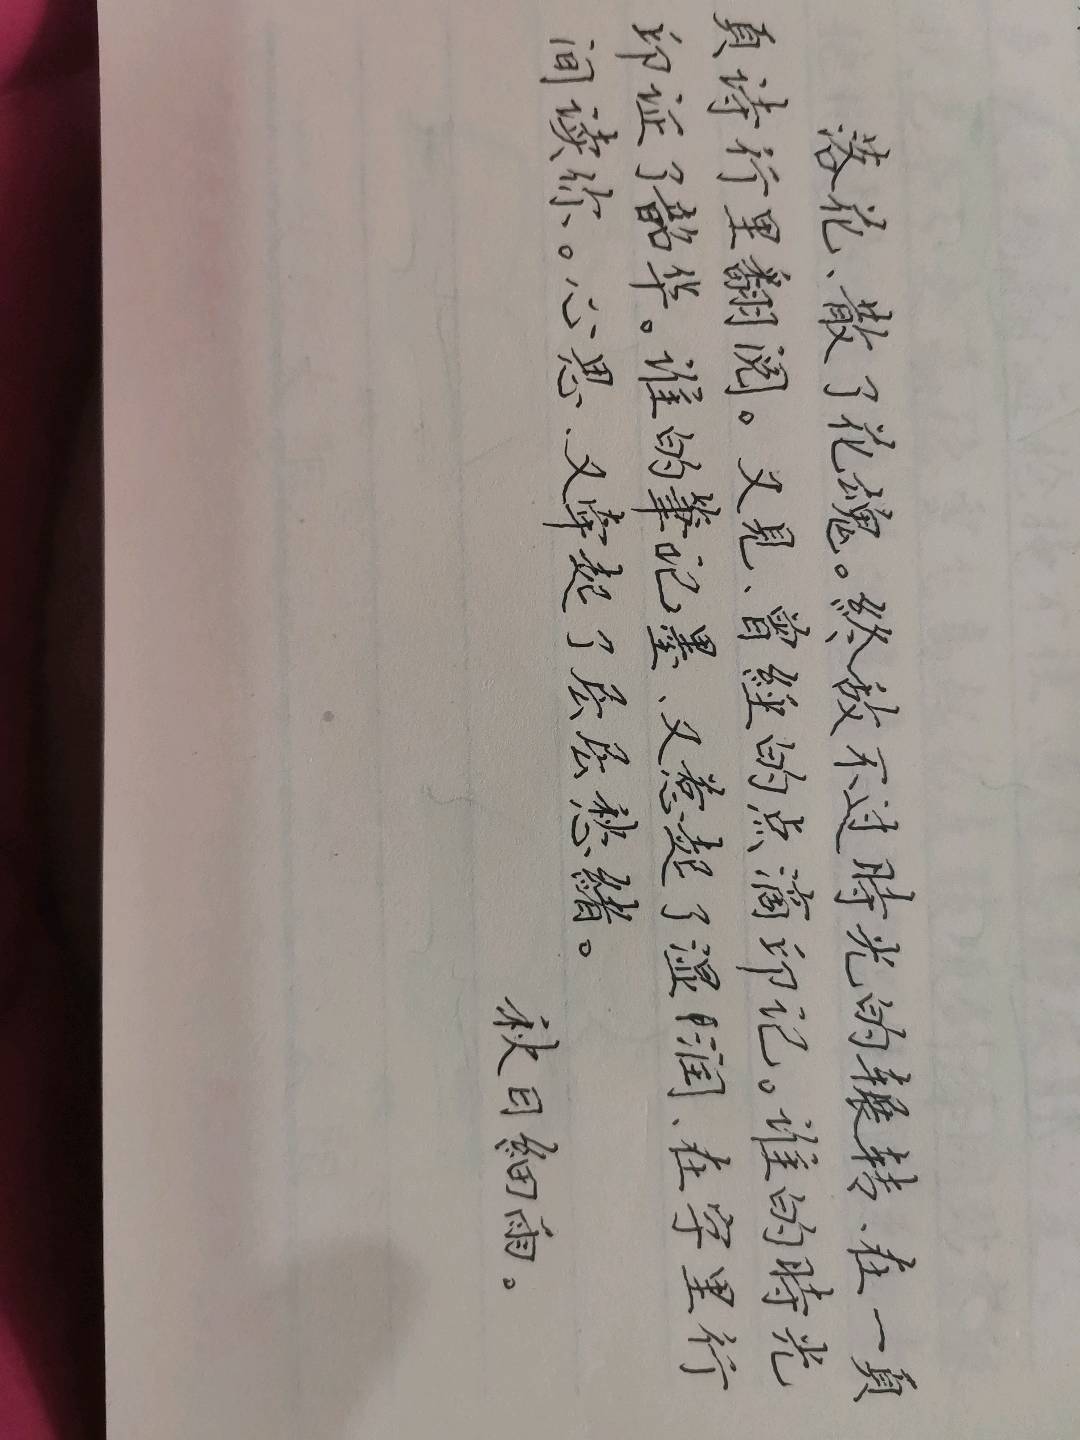 落花、散了花魂。終敌不过時光的辗转、在一頁
頁诗行里翻阅。又見、曾經的点滴印记。谁的時光
印证了韶华。谁的筆记墨、又惹起了湿润、在字里行
间读你。心思、又牵起了层层愁緒。
秋日細雨。